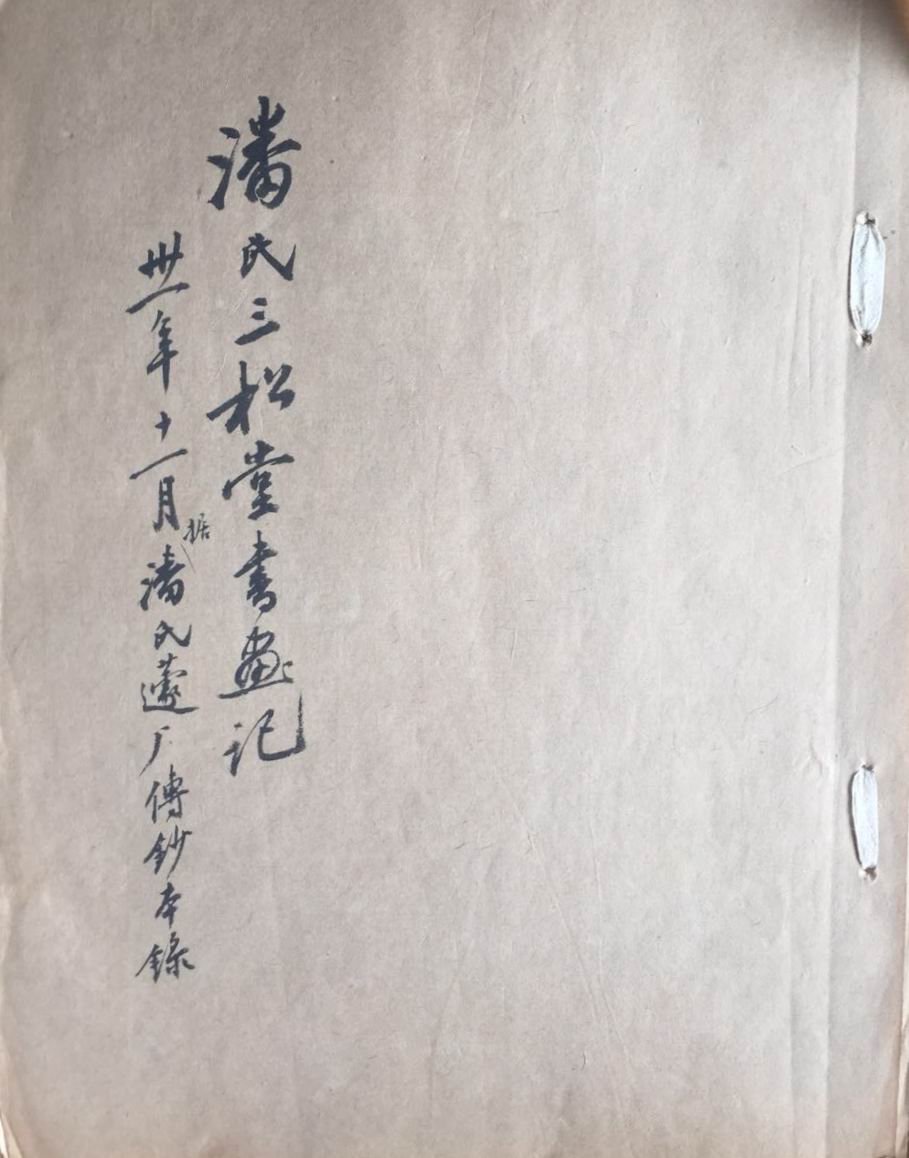 潘氏三松堂書畫記
卅一年十一月據潘氏蘧厂傳鈔本錄